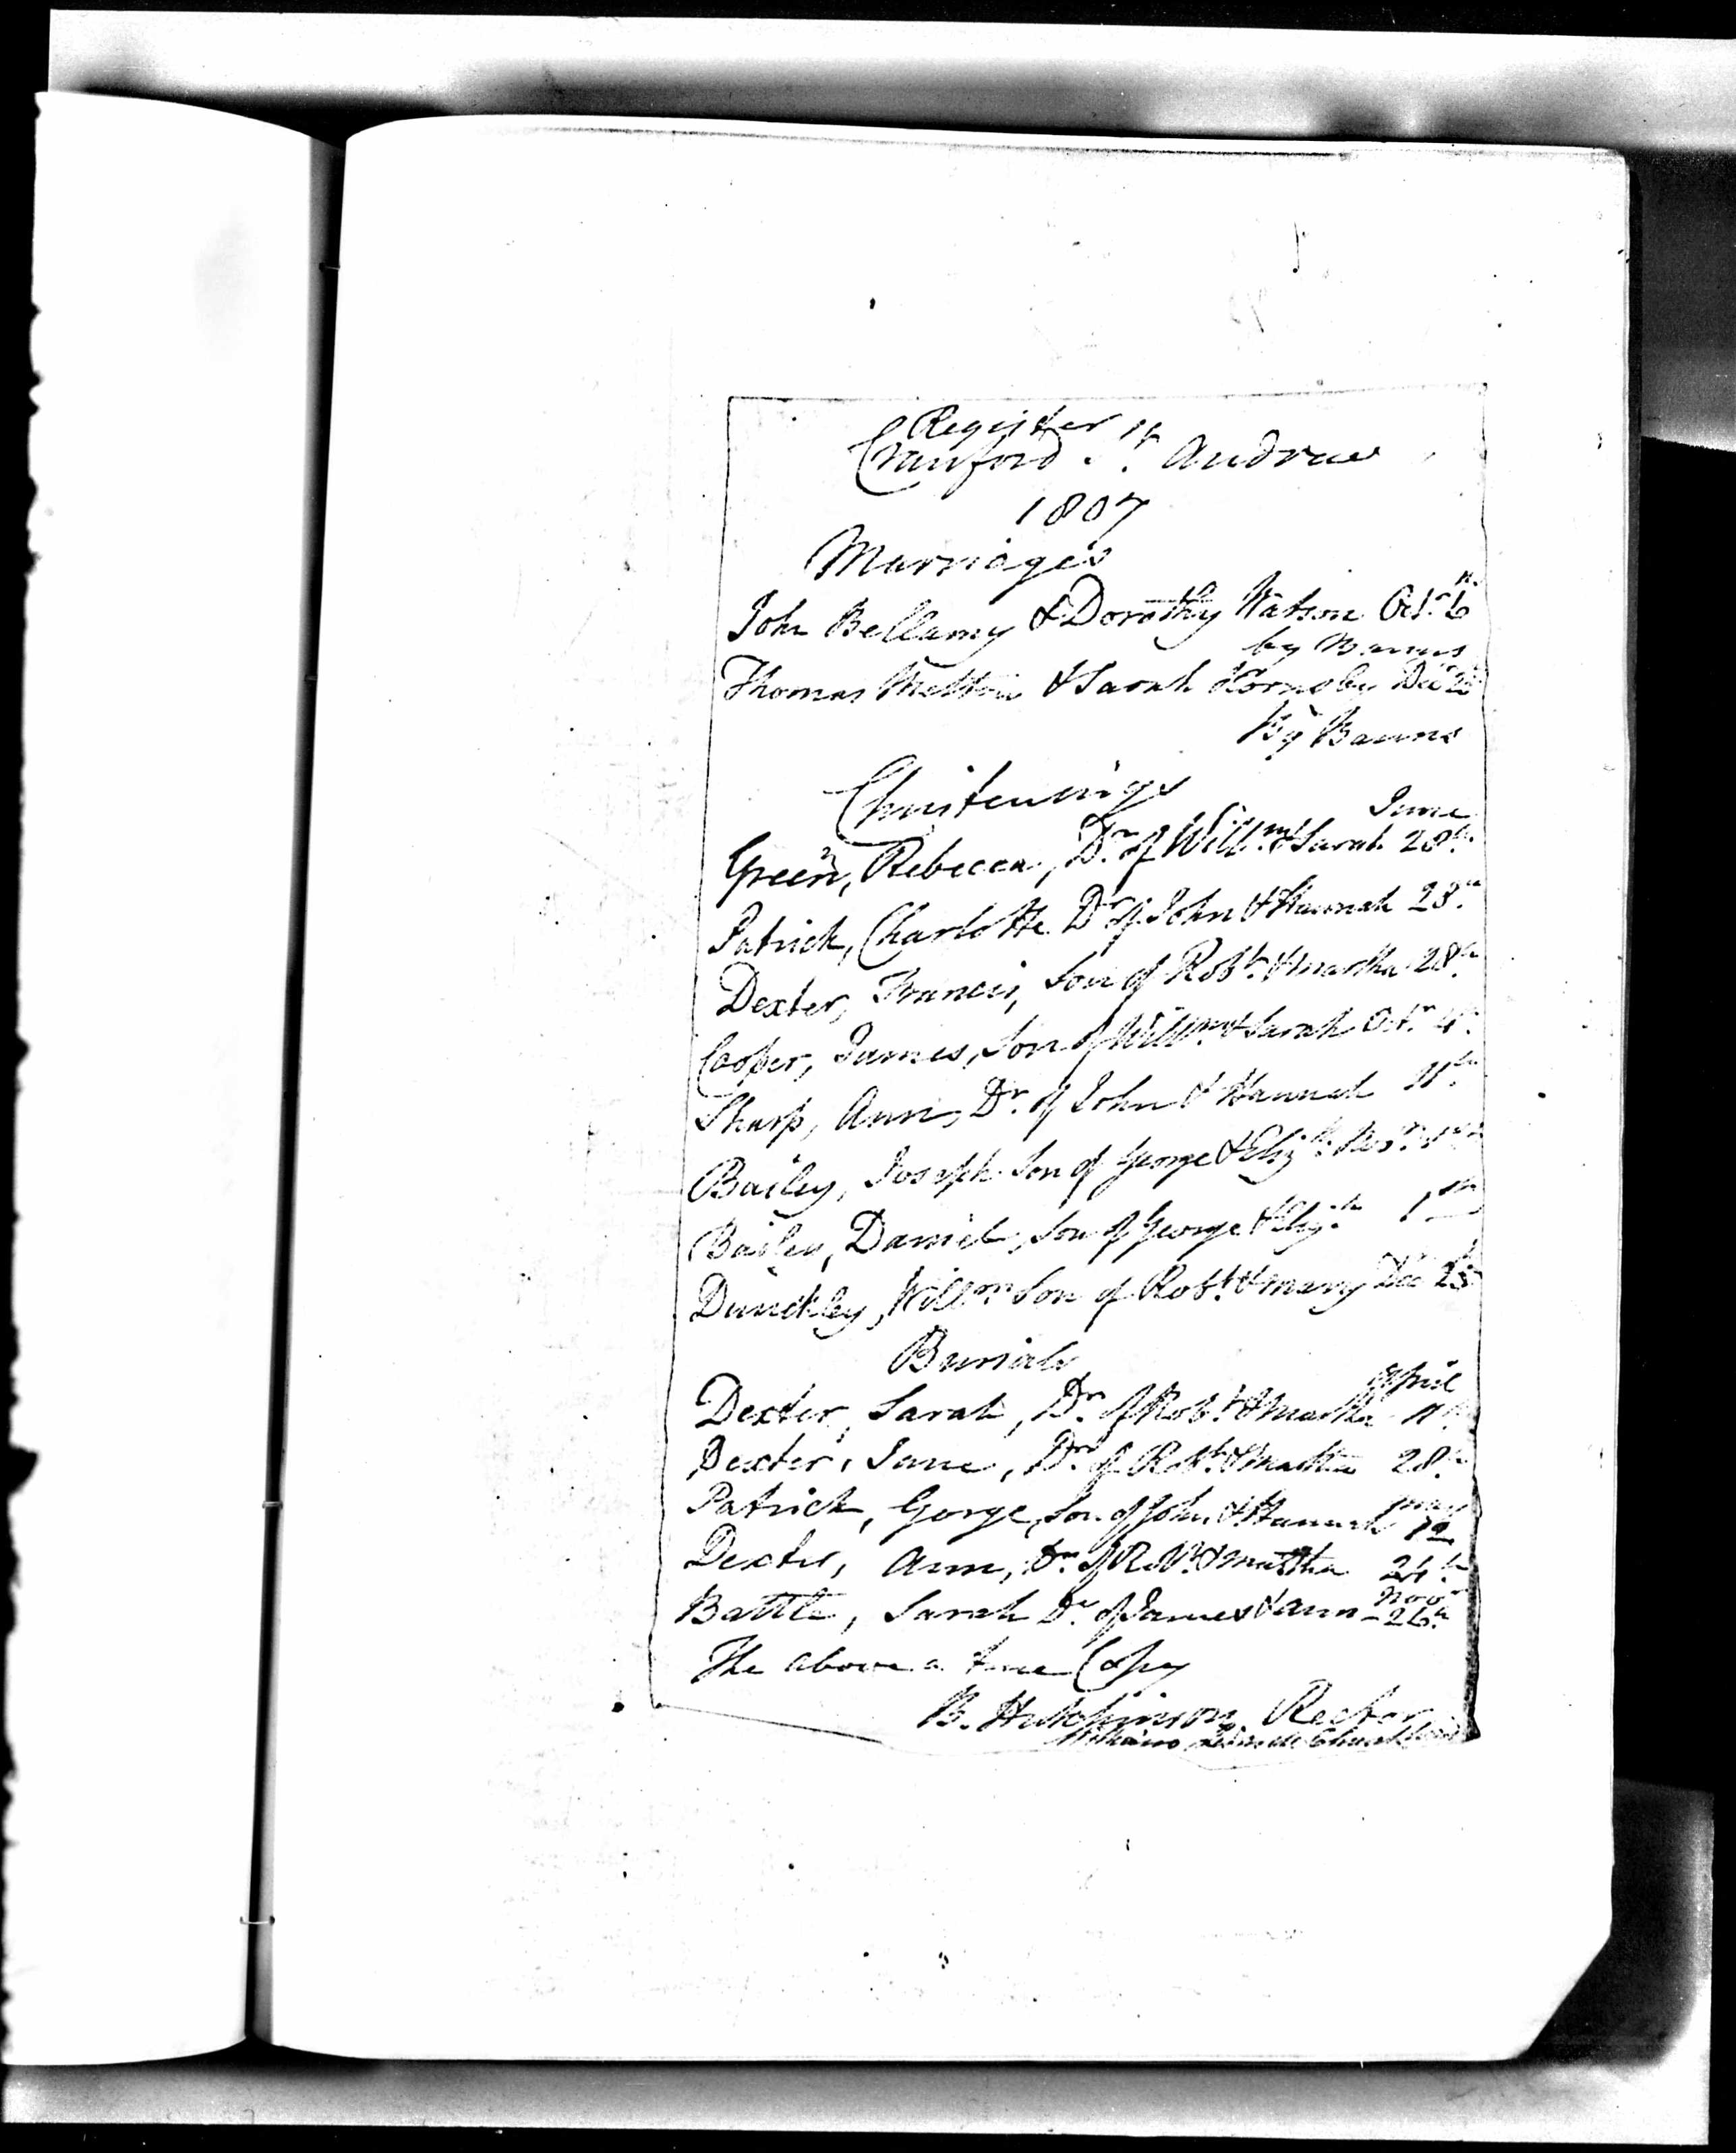 Register
Cranford St. Andrew
1807
Marriages
John Bellamy & Dorothy Watson Octr. 6th.
by Banns
Thomas & Sarah Hornsby Decr
By Banns
Christenings
June
Green, Rebecca, Dr. of Willm. & Sarah 28th.
Patrick, Charlotte Dr. of John & Hannah 28th.
Dexter, Francis, Son of Robt. & Martha 28th.
Cooper, James, Son of Willm. & Sarah Octr. 4th.
Sharp, Ann, Dr. of John & Hannah 11th.
Bailey, Joseph Son of George & Elizth. Novr. 1st
Bailey, Daniel, Son of George & Elizth. 1st
Dunckley, Willm. Son of Robt. & Mary Dec 25
Burials
April
Dexter, Sarah, Dr. of Robt. & Martha 11th.
Dexter, Jane, Dr. of Robt. & Martha 28th.
May
Patrick, George, Son of John & Hannah 12
Dexter, Ann, Dr. of Robt. & Martha 24th
Novr
Battle, Sarah Dr. of James & Ann - 26th.
The above a true Copy
B. Hutchinson Rector
William